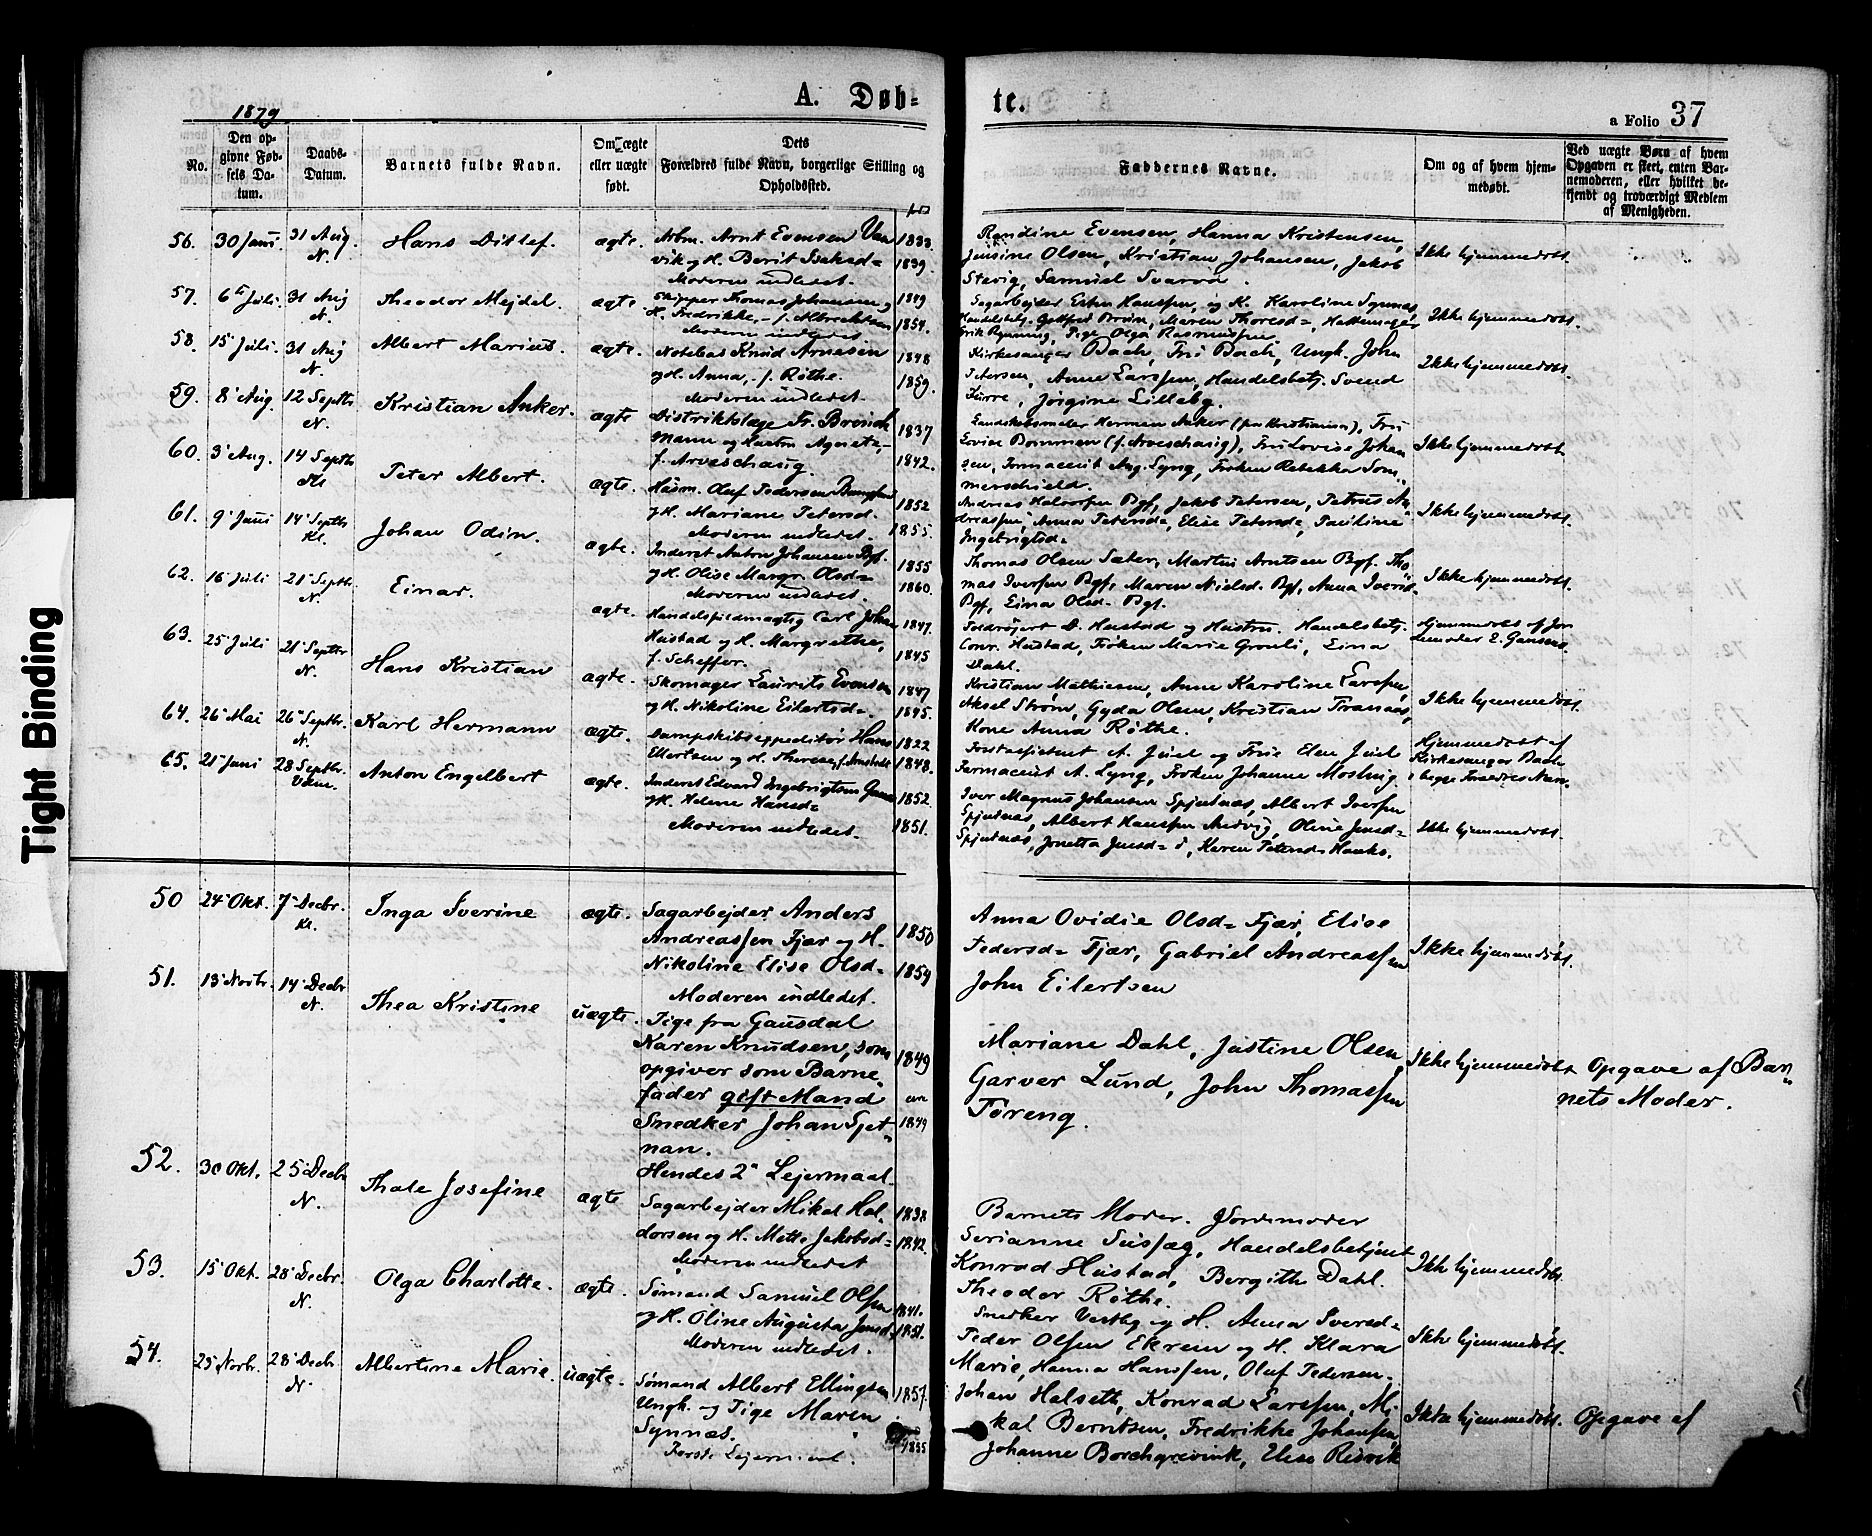 Tight Binding
1879
A. Døb-
te.
a Folio 37
No.
Den op-
givne Fød-
sels Da-
tum.
Daabs-
Datum.
Barnets fulde Navn.
Om ægte
eller uægte
født.
Dets
Forældres fulde Navn, borgerlige Stilling og
Opholdssted.
Faddernes Navne.
Om og af hvem hjem-
medøbt.
Ved uægte Børn af hvem
Opgaven er skeet, enten Bar-
nemoderen, eller hvilket be-
kjendt og troværdigt Medlem
af Menigheden.
56. 30 Juni 31 Aug. N. Hans Ditlef. ægte. Arbm. Arnt Evensen
og H. Berit Isaksd= 1839.
Moderen indledet.
Rendine Evensen, Hanna Kristensen,
Jensine Olsen, Kristian Johansen, Jakob
Stavig, Samuel
Ikke hjemmedøbt.
57. 6te Juli 31 Aug N. Theodor Mejdel. ægte. Skipper Thomas Johansen og 1849
H. Fredrikke, 1854.
Moderen indledet
Sagarbejder Hanssen, og K. Karoline Synnæs,
Handelsbetj. Gottfred Maren Thoresd=
Pige Olga Rasmussen.
Ikke hjemmedøbt.
58. 15 Juli. 31 Aug N. Albert Marius. ægte. Notebas Knud Arnesen 1848
og H. Anna, f. Røthe. 1859.
Moderen indledet.
Kirkesanger Bach, Fru Bach, Ungk. John
Petersen, Anne Larssen, Handelsbetj. Svend
Jørgine Lilleby.
Ikke hjemmedøbt.
59. 8 Aug. 12 Septbr N. Kristian Anker. ægte Distriktslæge Fr. 1837
og Hustru Agnete, 1842.
Landskabsmaler Herman Anker (fra Kristiania), Fru
Fru Lovise Johan
sen, Farmaceut Aug. Lyng, Frøken Rebekka Som"
merschield.
Ikke hjemmedøbt
60. 3 Aug. 14 Septbr Kl Peter Albert. ægte. Husm. Oluf Pedersen 1852
og H. Mariane Petersd. 1855.
Moderen indledet.
Andreas Halvorsen Bgf, Jakob Petersen, Petrus An
dreassen, Anna Petersd=, Elise Petersd=, Pauline
Ingebrigtsd=
Ikke hjemmedøbt.
61. 9 Juni 14 Septbr Kl. Johan Odin. ægte. Inderst Anton Johansen Bgf. 1855
og H. Olise Margr. Olsd= 1860.
Moderen indledet.
Thomas Olsen Sæter, Martin Arntsen Bgf. Tho
mas Iversen Bgf, Maren Nielsd. Bgf, Anna Iversd.
Bgf, Eina Olsd= Bgf.
Ikke hjemmedøbt.
62. 16 Juli 21 Septbr. N. Einar. ægte. Handelsfuldmægtig Carl Johan 1847.
Hustad og H. Margrethe, 1845
f. Scheffer.
D. Hustad og Hustru. Handelsbetj.
Conr. Hustad, Frøken Marie Eina
Dahl.
Hjemmedøbt af Jor
demoder E.
63. 25 Juli 21 Septbr N. Hans Kristian ægte. Skomager Laurits Evensen 1847
og H. Nikoline Eilertsd= 1845.
Kristian Mathiesen, Anne Karoline Larssen,
Aksel Strøm, Gyda Olsen, Kristian
Kone Anna Røthe.
Ikke hjemmedøbt.
64. 26 Mai 26 Septbr. N. Karl Hermann ægte. Dampskibsexpeditør Hans 1822
Ellertsen og H. Therese, 1848.
A. Juel og Frue Elen Juel
Farmaceut A. Lyng, Frøken Johanne Mosling.
Hjemmedøbt af
Kirkesanger Bach
i begge Forældres Navn.
65. 21 Juni 28 Septbr. Anton Engelbert ægte. Inderst Edvard Ingebrigtsen 1852.
og H. Helene Hansd= 1851.
Moderen indledet.
Iver Magnus Johansen Spjutnæs, Albert Iversen
Spjutnæs, Albert Hanssen Oline Jensd=
Spjutnæs, Jonetta Jensd= i, Karen Petersd=
Ikke hjemmedøbt.
50 24 Okt. 7 Decbr. Kl. Inga Iverine ægte. Sagarbejder Anders
Andreassen Fjær og H. 1850
Nikoline Elise Olsd= 1854
Moderen indledet.
Anna Ovidie Olsd= Fjær, Elise
Pedersd= Fjær, Gabriel Andreassen
John Eilertsen
Ikke hjemmedøbt.
51. 13 Novbr. 14 Decbr N. Thea Kristine uægte. Pige fra Gausdal
Karen Knudsen, som 1849
opgiver som Barne-
fader gift Mand
Snedker Johan Sjet" 1849
nan.
Hendes 2" Lejermaal
Mariane Dahl, Justine Olsen
Garver Lund, John Thomassen
Tøreng.
Ikke hjemmedøbt
Opgave af Bar"
nets Moder.
52. 30 Okt. 25 Decbr N. Thale Josefine ægte Sagarbejder Mikal Hal- 1838
dorsen og H. Mette Jakobsd= 1842.
Moderen indledet
Barnets Moder. Jordemoder
Serianne Handelsbetjent
Konrad Hustad, Bergithe Dahl.
Theodor Røthe.
Ikke hjemmedøbt.
53. 15 Okt. 28 Decbr. N. Olga Charlotte. ægte. Sømand Samuel Olsen 1841.
og H. Oline Augusta Jensd. 1851.
Moderen indledet.
Snedker Vestby og H. Anna Iversd=
Peder Olsen Ekrem og H. Klara
Marie, Hanna Hanssen, Oluf Pedersen.
Ikke hjemmedøbt.
54. 25 Novbr. 28 Decbr. N. Albertine Marie. uægte. Sømand Albert Ellingsen 1857.
Ungk. og Pige Maren
Synnæs.
Første Lejermaal.
Johan Halseth, Konrad Larssen, Mi
kal Berntsen, Fredrikke Johansen,
Johanne Borchgrevink, Elise Risvik
Ikke hjemmedøbt.
Opgave af